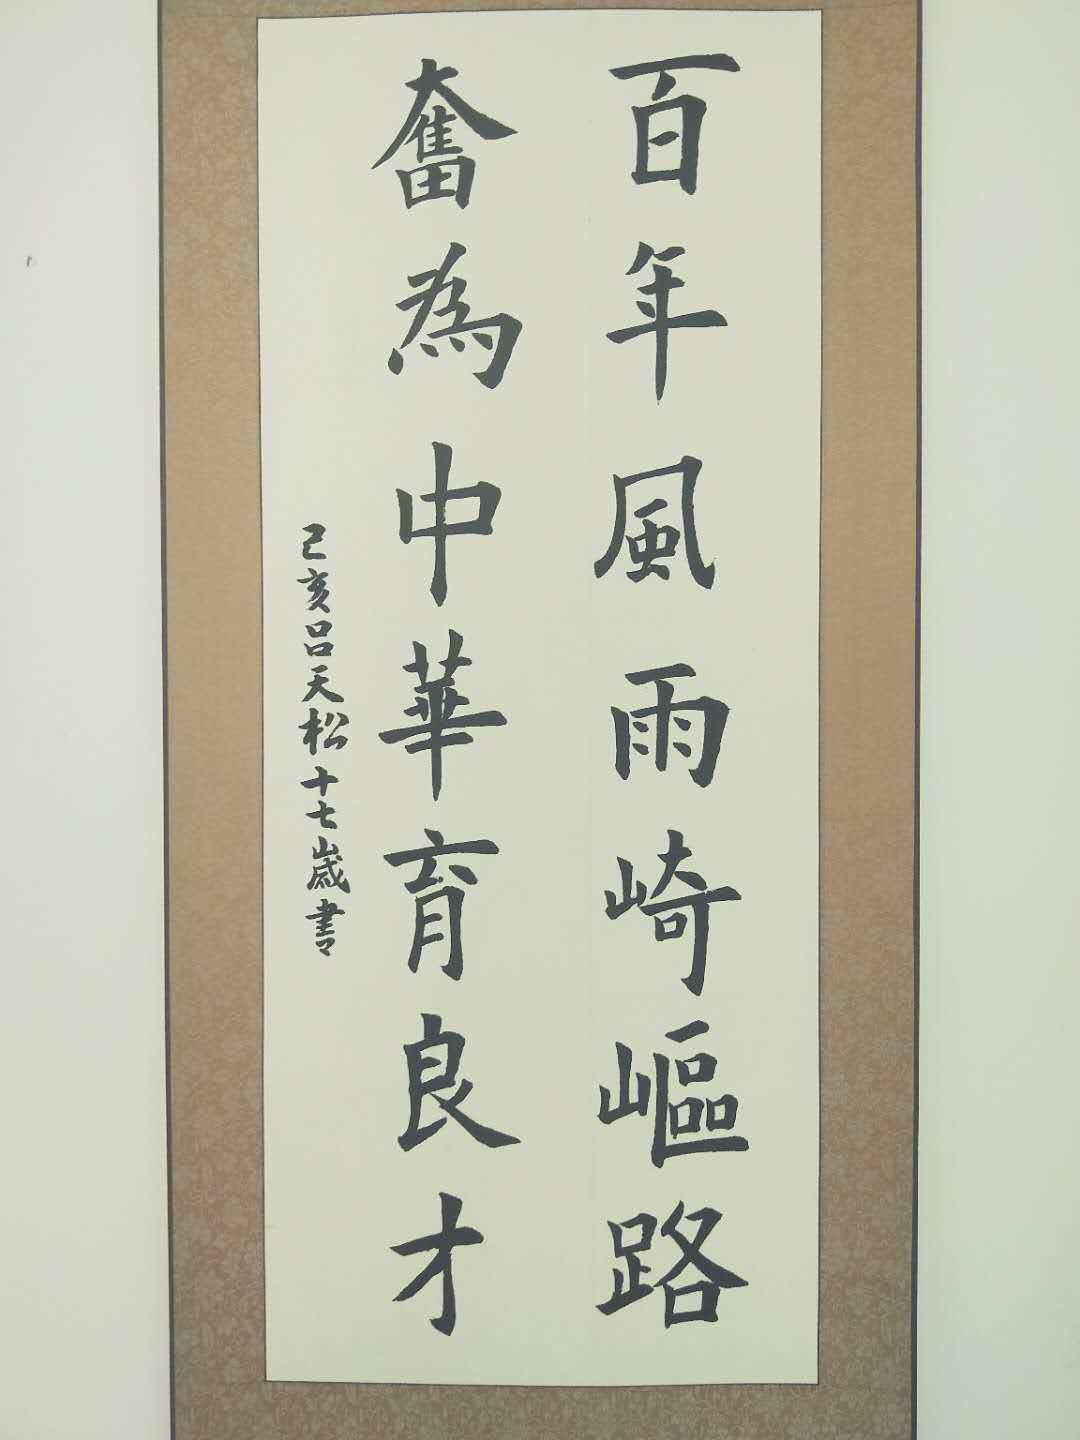 百年風雨崎嶇路
奮為中華育良才
己亥呂天松十七歲書